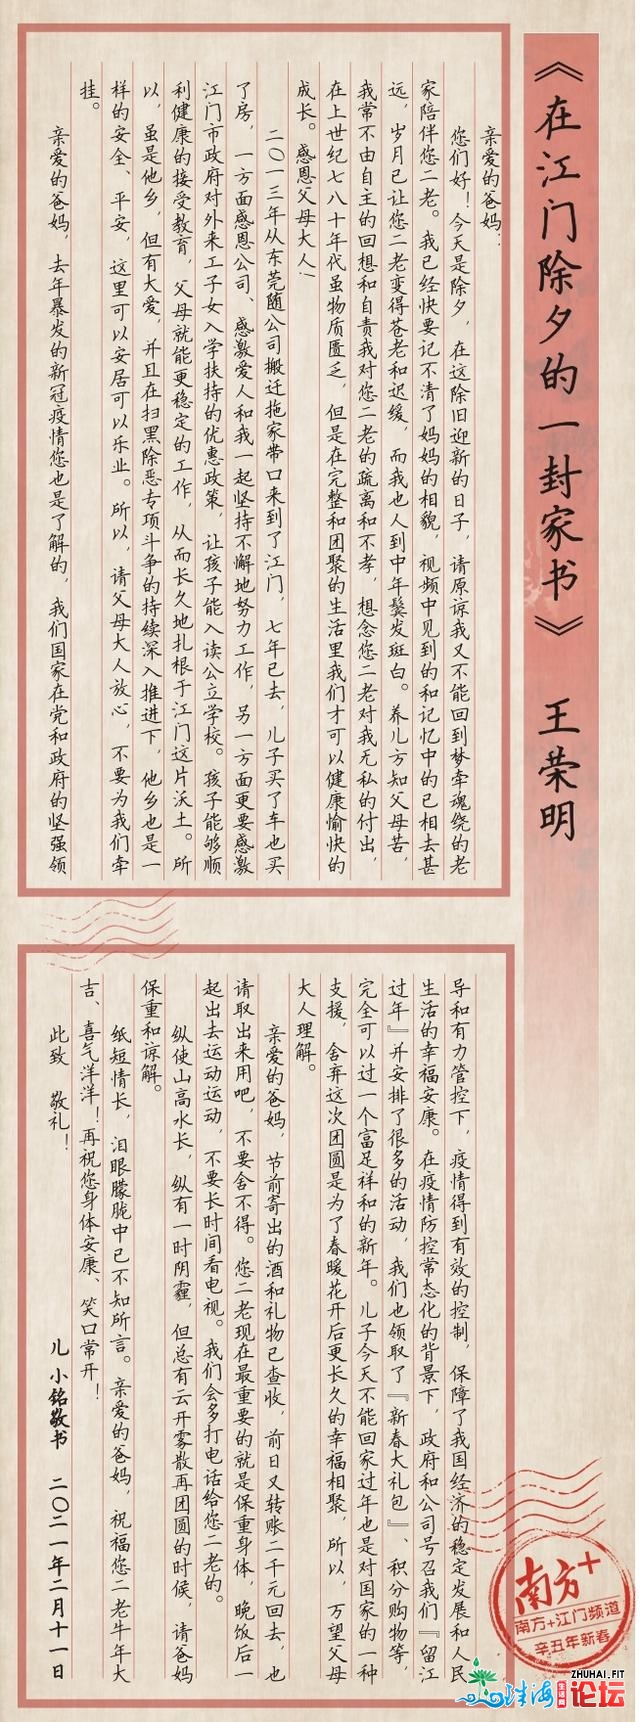 《在江门除夕的一封家书》 王荣明
亲爱的爸妈:
您们好!今天是除夕,在这除旧迎新的日子,请原谅我又不能回到梦牵魂绕的老
家陪伴您二老。我已经快要记不清了妈妈的相貌,视频中见到的和记忆中的已相去甚
远,岁月已让您二老变得苍老和迟缓,而我也人到中年鬓发斑白。养儿方知父母苦,
我常不由自主的回想和自责我对您二老的疏离和不孝,想念您二老对我无私的付出,
在上世纪七八十年代虽物质匮乏,但是在完整和团聚的生活里我们才可以健康愉快的
成长。感恩父母大人!
二〇一三年从东莞随公司搬迁拖家带口来到了江门,七年已去,儿子买了车也买
了房,一方面感恩公司、感激爱人和我一起坚持不懈地努力工作,另一方面更要感激
江门市政府对外来工子女入学扶持的优惠政策,让孩子能入读公立学校。孩子能够顺
利健康的接受教育,父母就能更稳定的工作,从而长久地扎根于江门这片沃土。所
以,虽是他乡,但有大爱,并且在扫黑除恶专项斗争的持续深入推进下,他乡也是一
样的安全、平安,这里可以安居可以乐业。所以,请父母大人放心,不要为我们牵
挂。
亲爱的爸妈,去年暴发的新冠疫情您也是了解的,我们国家在党和政府的坚强领
导和有力管控下,疫情得到有效的控制,保障了我国经济的稳定发展和人民
生活的幸福安康。在疫情防控常态化的背景下,政府和公司号召我们『留江
过年』并安排了很多的活动,我们也领取了『新春大礼包』、积分购物等,
完全可以过一个富足祥和的新年。儿子今天不能回家过年也是对国家的一种
支援,舍弃这次团圆是为了春暖花开后更长久的幸福相聚,所以,万望父母
大人理解。
亲爱的爸妈,节前寄出的酒和礼物已查收,前日又转账二千元回去,也
请取出来用吧,不要舍不得。您二老现在最重要的就是保重身体,晚饭后一
起出去运动运动,不要长时间看电视。我们会多打电话给您二老的。
纵使山高水长,纵有一时阴霾,但总有云开雾散再团圆的时候,请爸妈
保重和谅解。
纸短情长,泪眼朦胧中已不知所言。亲爱的爸妈,祝福您二老牛年大
吉、喜气洋洋!再祝您身体安康、笑口常开!
此致 敬礼!
儿 小铭敬书 二〇二一年二月十一日
南方+
南方+江门频道
辛丑年新春
珠海 生活网 论坛
ZHUHAI.FIT